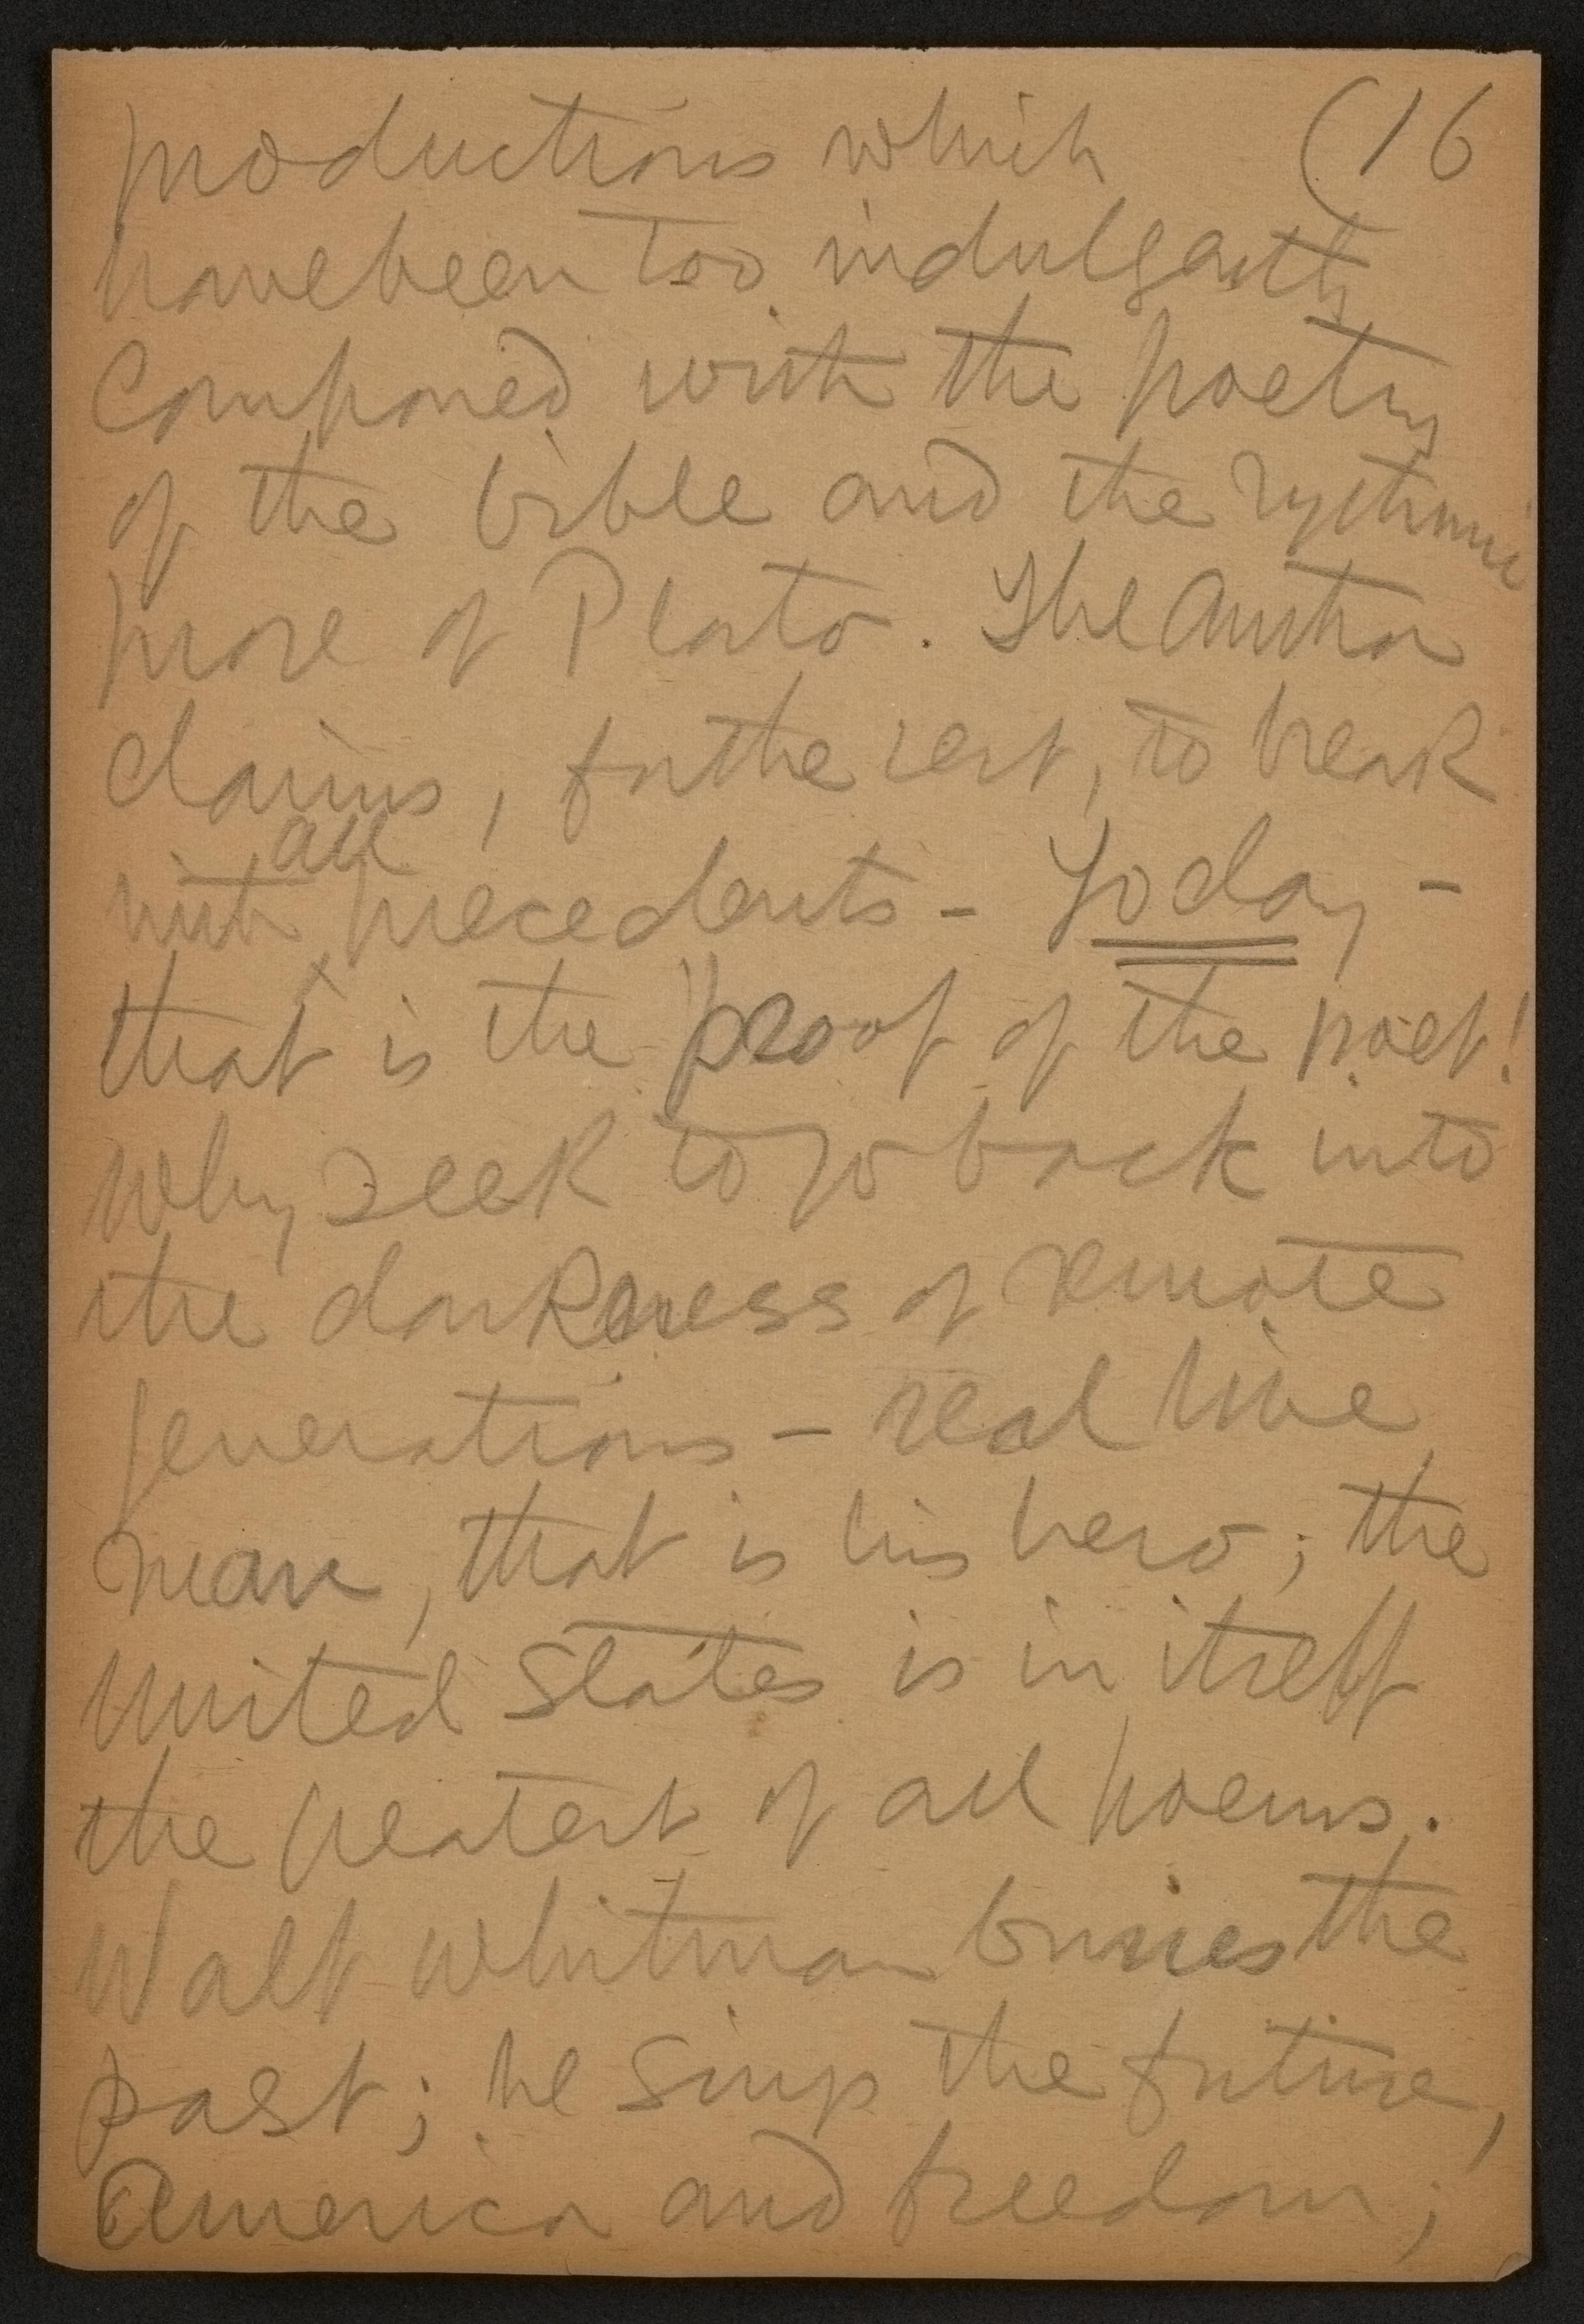 productions which (16
have been too indulgently
compared with the poetry
of the bible and the rythmic
prose of Plato. The author
claims, for the rest, to break
with all precedents - Today -
that is the proof of the poet!
Why seek to go back into
the darkness of remote
generations - real live
man, that is his hero; the
United States is in itself
the greatest of all poems.
Walt Whitman buries the
past; he sings the future,
America and freedom;